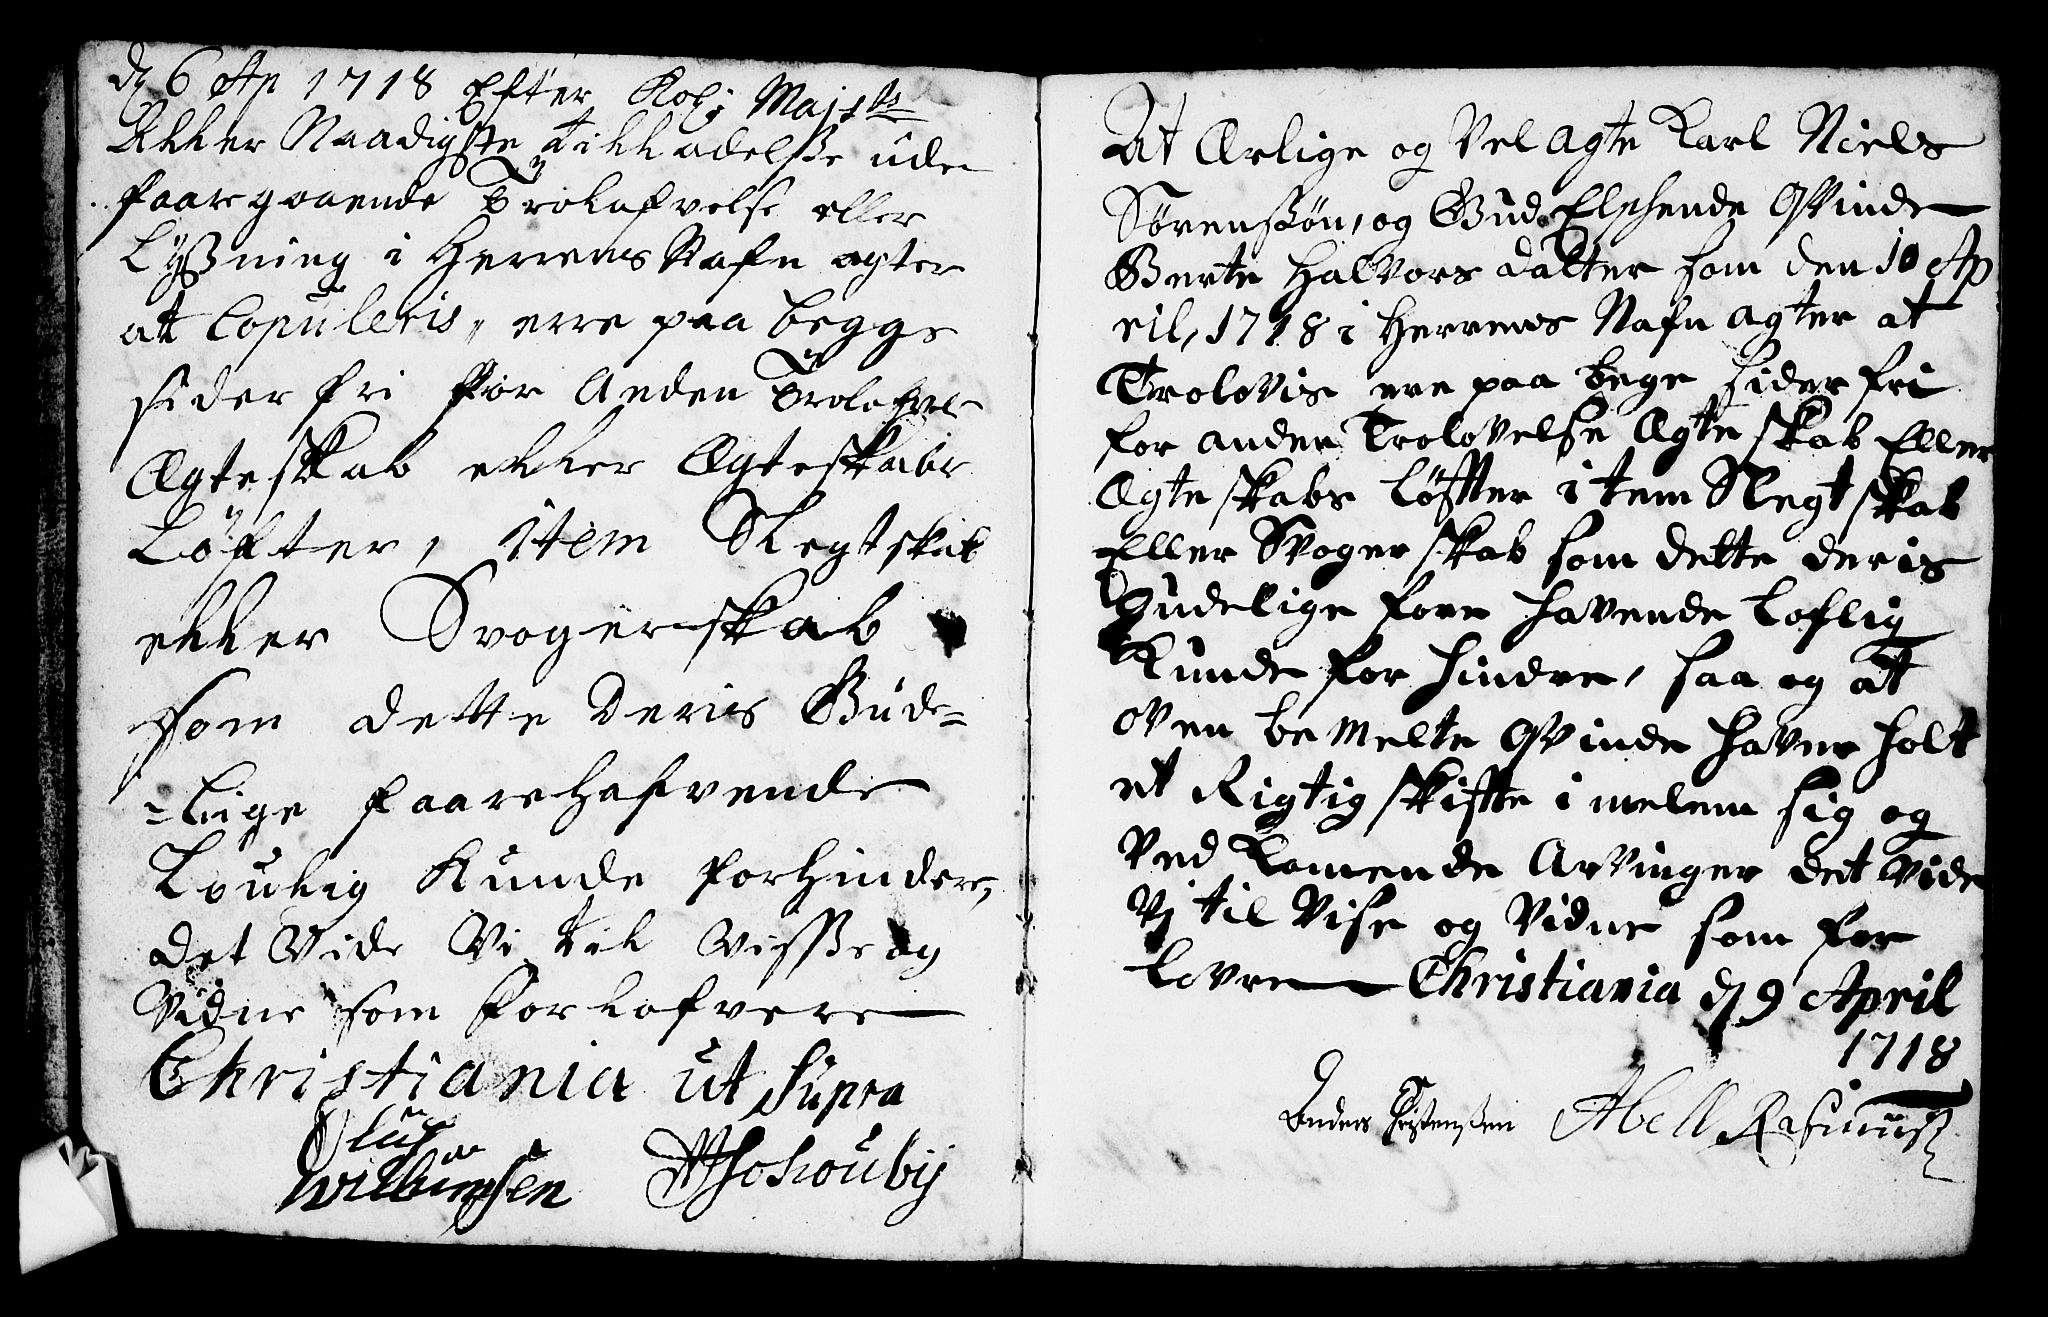 dj 6 Ap 1718 Efter Kol: Maj:ts
Aller Naadigste tilladelsse uden
faaregaaende Trolafvelse eller
Lyssning i Herrens Nafn agter
at Copuleris, erre paa begge
sider fri for Anden Trolafvelse
Ægteskab eller Ægteskabs
Løfter, item Slegtskab
eller Svogerskab
som dette Deris Gude=
=lige faarehafvende
Loulig Kunde forhindere,
det Vide Vi til Visse og
Vidne som Forlafvere
Christiania ut supra
Oluf
Wilhumsen Schouby
At Ærlige og Vel agte Karl Niels
Sørensøn, og Gud Elschende Qvinde
Berte Halvors datter som den 10 Ap
ril, 1718 i Herrens Nafn agter at
Trolovis ere paa bege sider fri
for anden Trolovelse Ægteskab Eller
Ægteskabs Løffter item Slegtskab
Eller Svogerskab som dette deris
Gudelige fore havende loflig
Kunde for hindre, saa og at
oven bemelte Qvinde haver holt
et Rigtig skiffte i melem sig og
Ved Komende Arvinger det Vide
Vj til Vise og Vidne som for
lovre Christiania dj 9 April
1718
Anders Christensen Abell Rasmuss